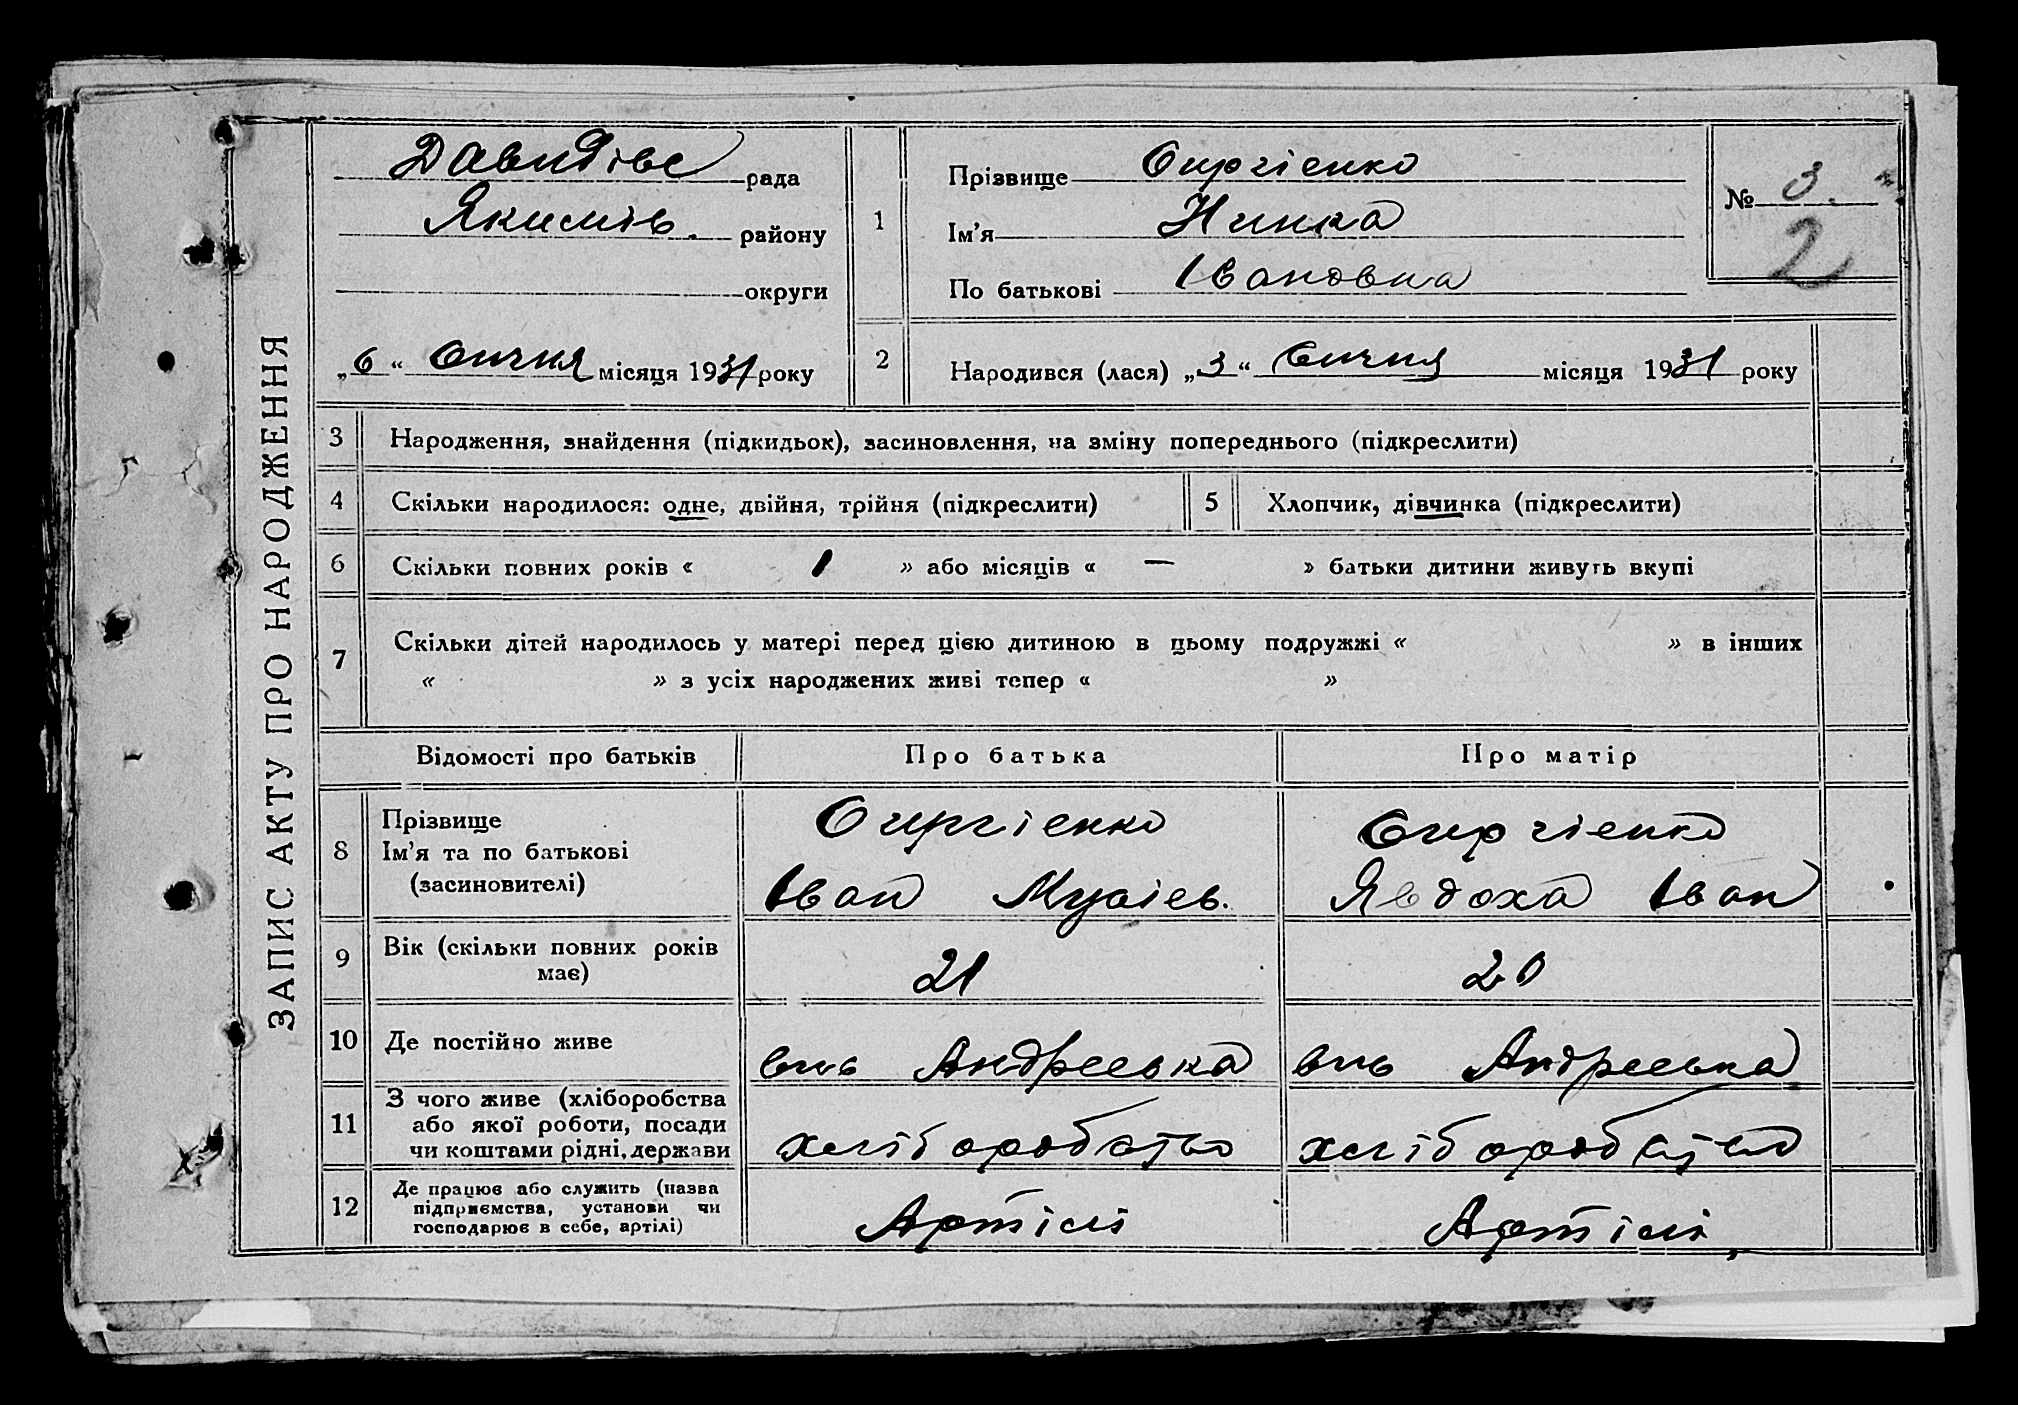 ЗАПИС АКТУ ПРО НАРОДЖЕННЯ
Давидівс рада
Якимів. району
округи
„6“ Сичня місяця 1931 року
1
Прізвище Сиргіенко
Ім’я Нинка
По батькові Івановна
№ 3
2
2 Народився (лася) „3“ Сичня місяця 1931 року
3 Народження, знайдення (підкидьок), засиновлення, на зміну попереднього (підкреслити)
4 Скільки народилося: одне, двійня, трійня (підкреслити) 5 Хлопчик, дівчинка (підкреслити)
6 Скільки повних років « 1 » або місяців « — » батьки дитини живуть вкупі
7 Скільки дітей народилось у матері перед цією дитиною в цьому подружжі « » в інших
« » з усіх народжених живі тепер « »
Відомості про батьків Про батька Про матір
8 Прізвище
Ім’я та по батькові
(засиновителі)
Сиргіенко
Іван Мусіев.
Сиргіенко
Явдоха Іван
9 Вік (скільки повних років
має)
21
20
10 Де постійно живе
Андреевка
Андреевка
11 З чого живе (хліборобства
або якої роботи, посади
чи коштами рідні, держави
хліборобство
хліборобство
12 Де працює або служить (назва
підприємства, установи чи
господарює в себе, артілі)
Артілі
Артілі